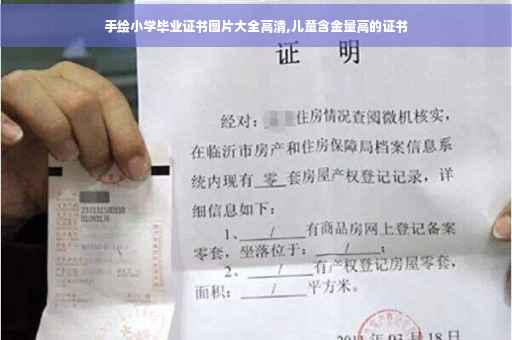 手绘小学毕业证书图片大全高清,儿童含金量高的证书
证 明
经对: 住房情况查阅微机核实,
在临沂市房产和住房保障局档案信息系
统内现有 零 套房屋产权登记记录,详
细信息如下:
1、 / 有商品房网上登记备案
零套,坐落位于: / ;
2、 / 有产权登记房屋零套,
面积: / 平方米。
月18日